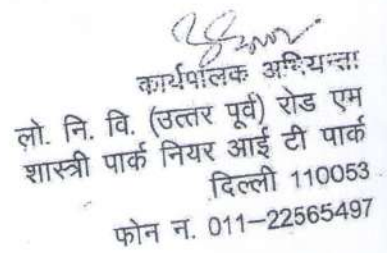 कार्यपालक अभियन्ता
लो. नि. वि. (उत्तर पूर्व) रोड एम
शास्त्री पार्क नियर आई टी पार्क
दिल्ली 110053
फोन न. 011-22565497